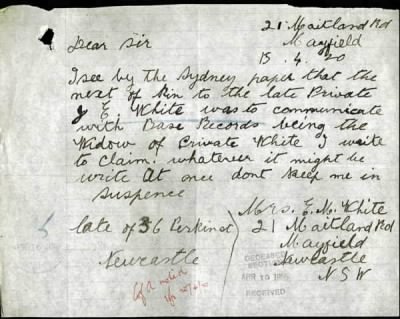 21 Maitland Rd
Mayfield
15. 4. 20
Dear Sir
I see by the Sydney paper that the
next of kin to the late Private
J E. White was to communicate
with Base Records being the
Widow of Private White I write
to claim. whatever it might be
write At once dont keep me in
suspence
Mrs. E. M. White
late of 36 Perkins St
21 Maitland Rd
Mayfield
Newcastle
Newcastle
N S W
RECEIVED